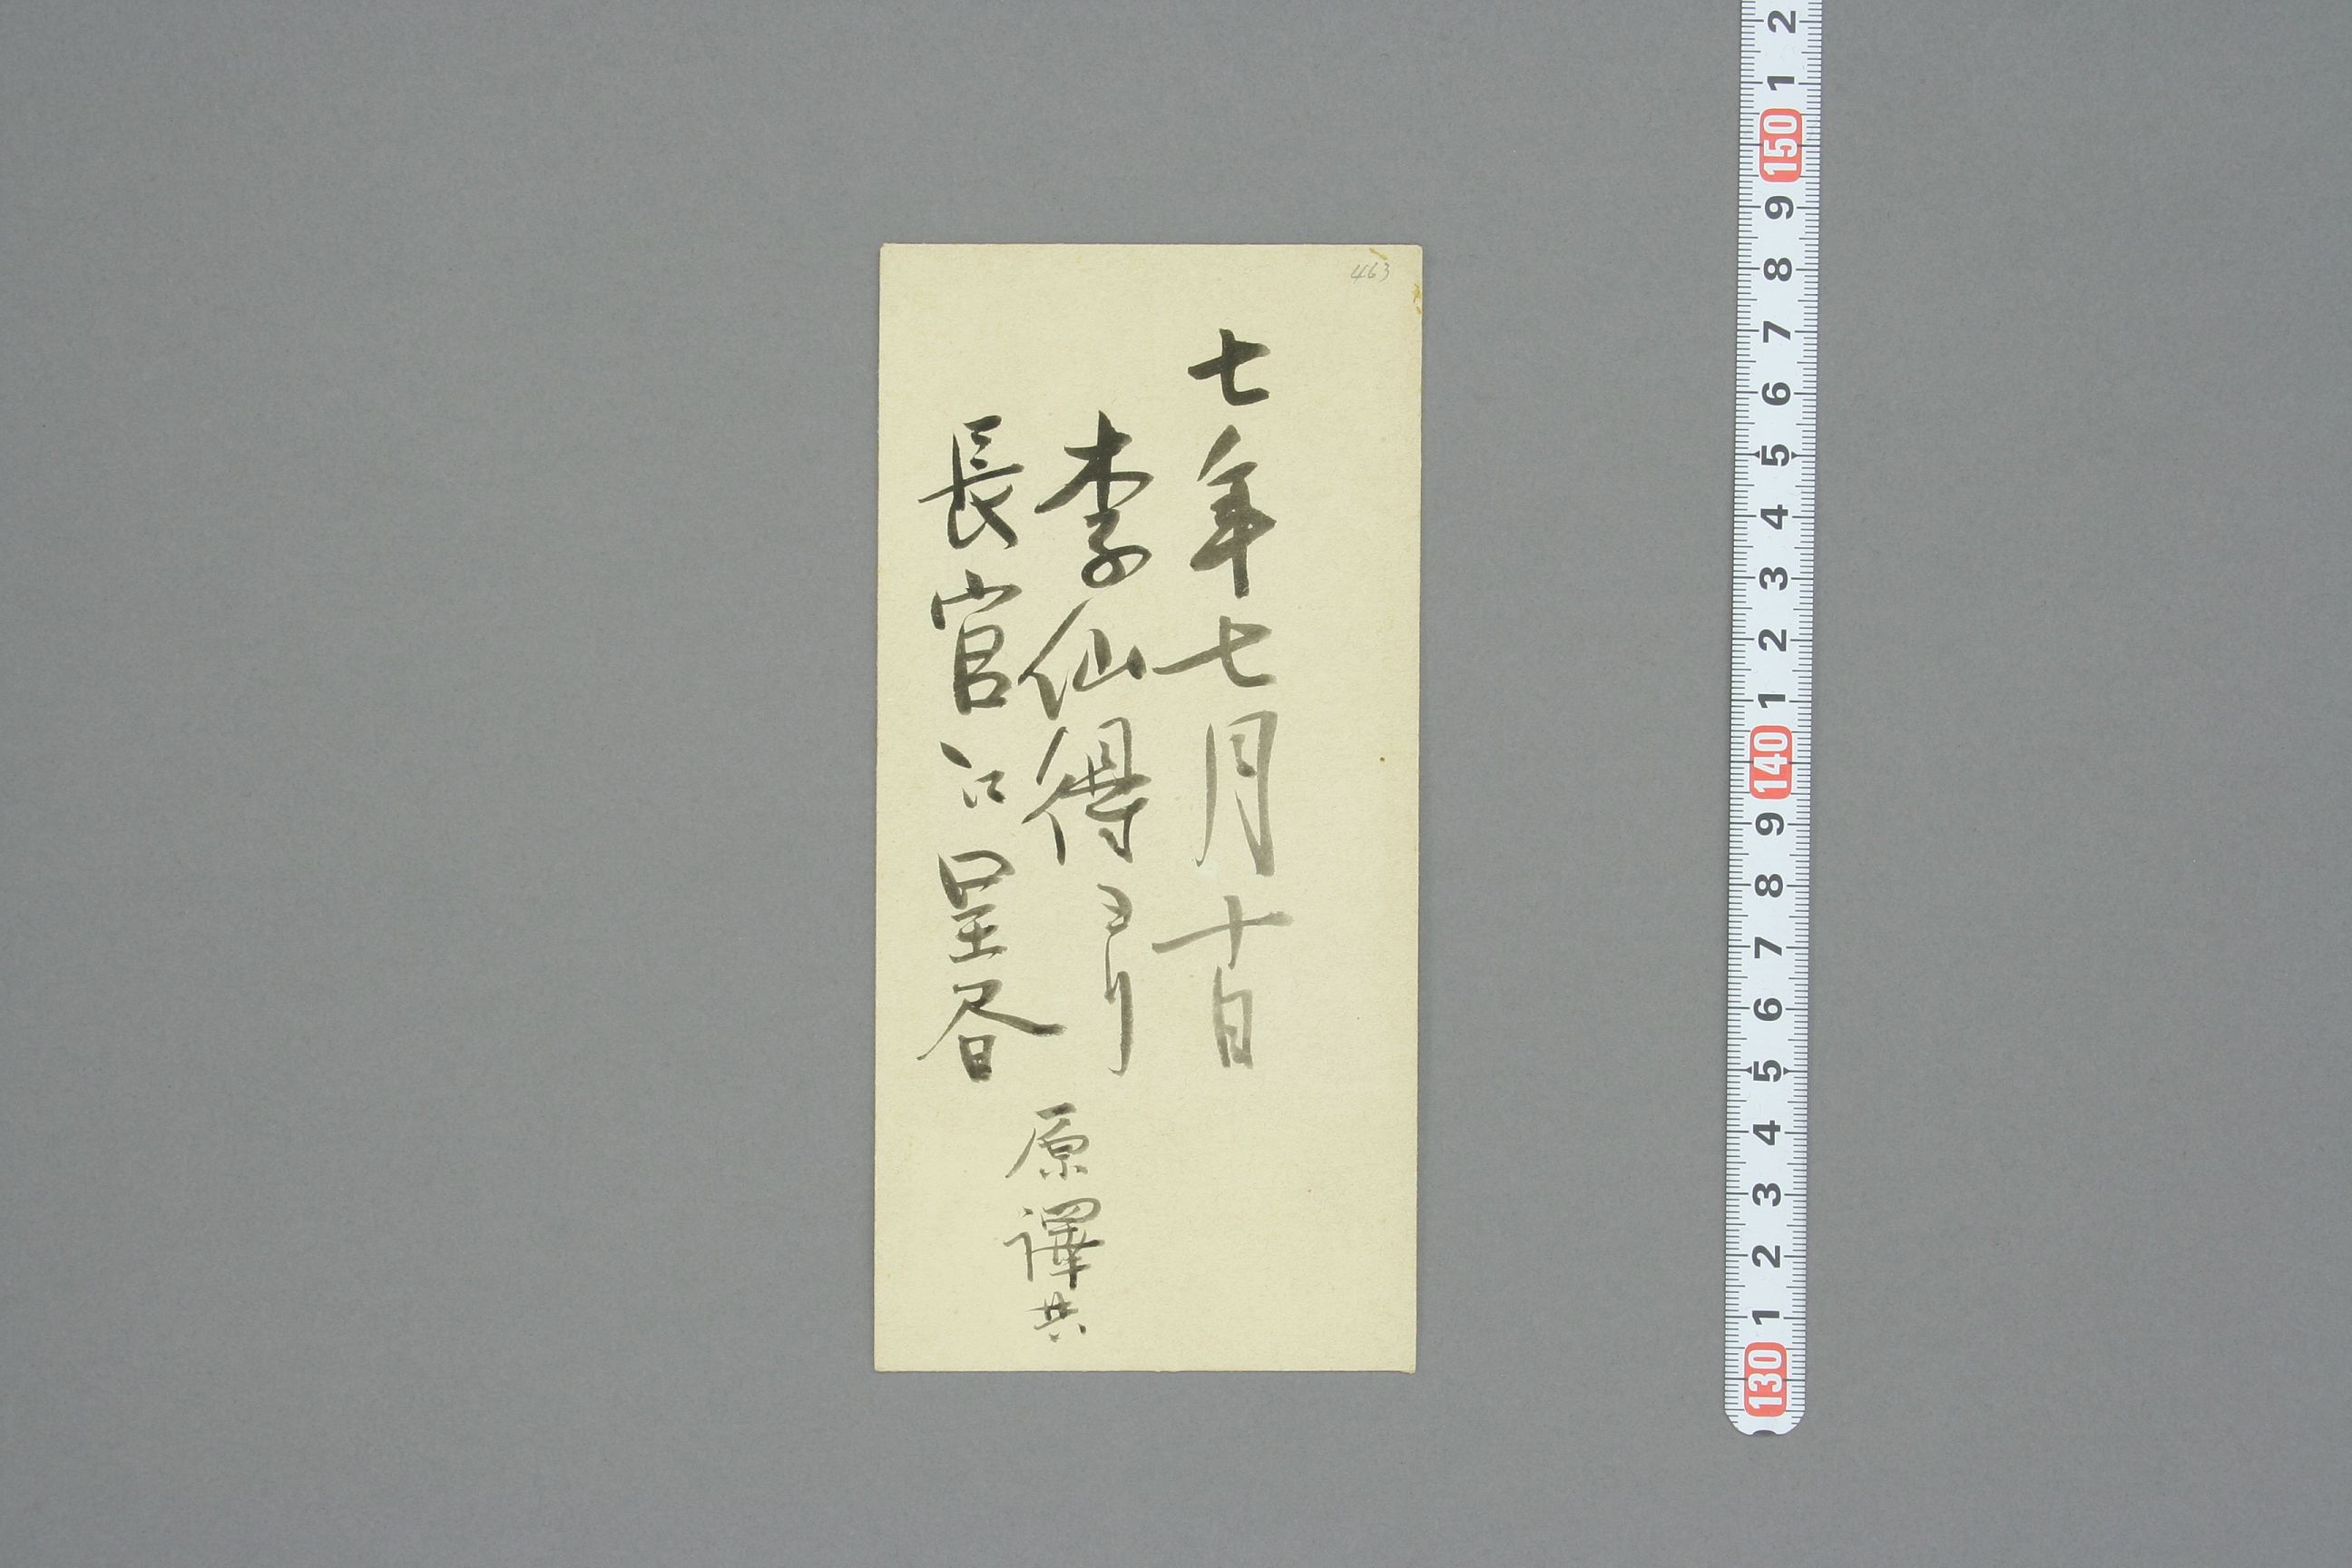 463
七年七月十日
李仙得ヨリ
長官江呈
原譯共
2 1 150 9 8 7 6 5 4 3 2 1 140 9 8 7 6 5 4 3 2 1 130